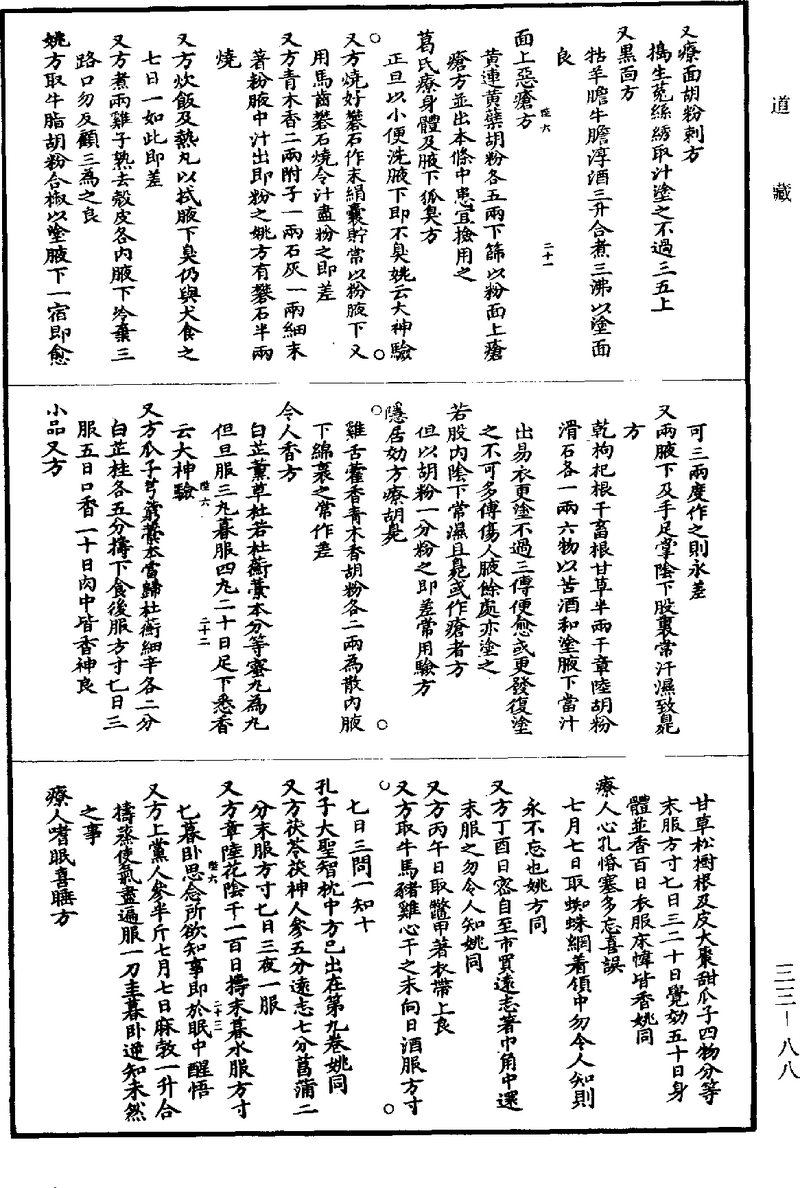 道藏
又療面胡粉刺方
擣生菟絲綉取汁塗之不過三五上
又黑面方
牯羊膽牛膽淳酒三升合煮三沸以塗面
良
面上惡瘡方
陸六
二十一
黄連黄蘗胡粉各五兩下篩以粉面上瘡
瘡方並出本條中患宜撿用之
葛氏療身體及腋下狐臭方
正旦以小便洗腋下即不臭姚云大神驗
又方燒好礬石作末絹囊貯常以粉腋下又
用馬齒礬石燒令汁盡粉之即差
又方青木香二兩附子一兩石灰一兩細末
著粉腋中汁出即粉之姚方有礬石半兩
燒
又方炊飯及熱丸以拭腋下臭仍與犬食之
七日一如此即差
又方煮兩雞子熟去殼皮各内腋下冷棄三
路口勿反顧三為之良
姚方取牛脂胡粉合椒以塗腋下一宿即愈
可三兩度作之則永差
又兩腋下及手足掌陰下股裏常汗濕致臰
方
乾枸杞根干畜根甘草半兩干章陸胡粉
滑石各一兩六物以苦酒和塗腋下當汁
出易衣更塗不過三傅便愈或更發復塗
之不可多傅傷人腋餘處亦塗之
若股内陰下常濕且臰或作瘡者方
但以胡粉一分粉之即差常用驗方
隱居効方療胡臰
雞舌藿香青木香胡粉各二兩為散内腋
下綿裹之常作差
令人香方
白芷薰草杜若杜蘅藁本分等蜜丸為丸
但旦服三丸暮服四丸二十日足下悉香
云大神驗
陸六
二十二
又方瓜子芎藭藁本當歸杜蘅細辛各二分
白芷桂各五分擣下食後服方寸匕日三
服五日口香一十日肉中皆香神良
小品又方
甘草松樹根及皮大棗甜瓜子四物分等
末服方寸匕日三二十日覺効五十日身
體並香百日衣服床幃皆香姚同
療人心孔惛塞多忘喜誤
七月七日取蜘蛛網着領中勿令人知則
永不忘也姚方同
又方丁酉日密自至市買遠志著巾角中還
末服之勿令人知姚同
又方丙午日取鱉甲著衣帶上良
又方取牛馬豬雞心干之末向日酒服方寸
匕日三問一知十
孔子大聖智枕中方已出在第九卷姚同
又方茯苓茯神人參五分遠志七分菖蒲二
分末服方寸匕日三夜一服
又方章陸花陰干一百日擣末暮水服方寸
陸六
二十三
匕暮卧思念所欲知事即於眠中醒悟
又方上黨人參半斤七月七日麻勃一升合
擣蒸使氣盡遍服一刀圭暮卧逆知未然
之事
療人嗜眠喜睡方
三三－八八